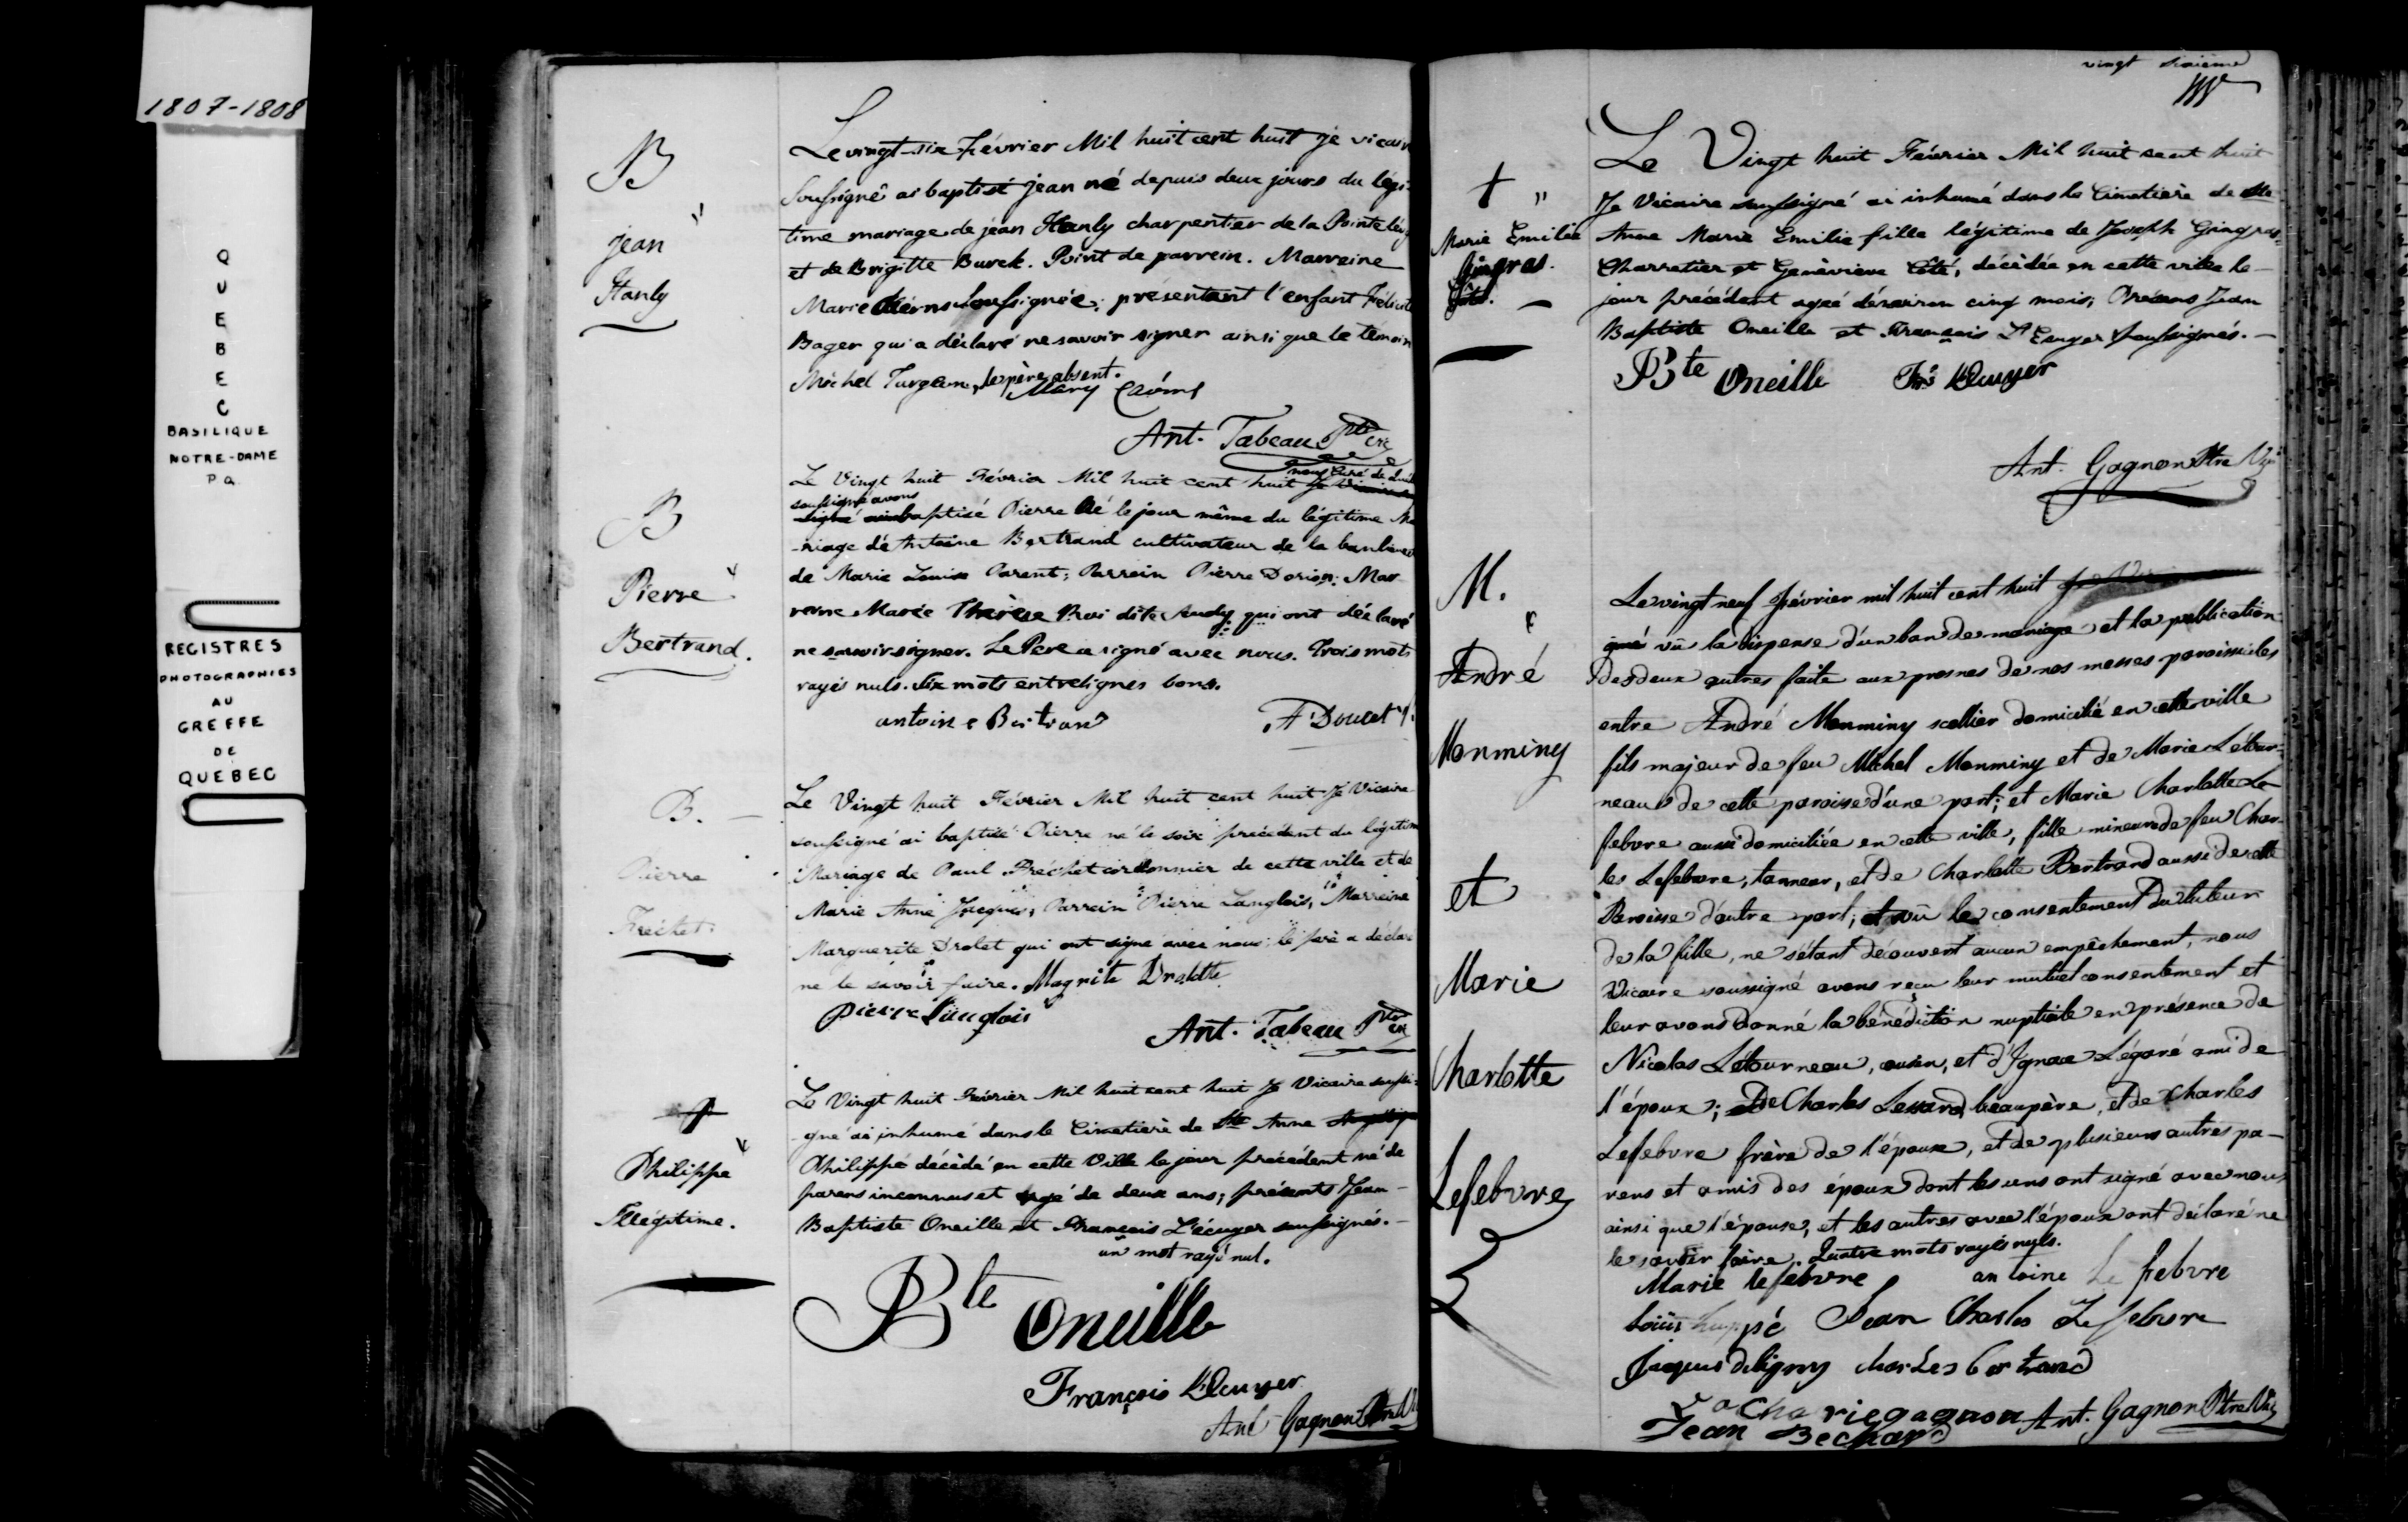 1807-1808
QUEBEC
BASILIQUE
NOTRE-DAME
REGISTRES
PHOTOGRAPHIES
AU
GREFFE
DE
QUEBEC
B
jean
Hanly
Le vingt-six Février Mil huit cent huit je vicaire
soussigné ai baptisé jean né depuis deux jours du légi-
time mariage de jean Hanly charpentier de la Pointe lévy
et de Brigitte Burck. Point de parrein. Marreine
Marie soussignée; présentant l'enfant Félicité
Bager qui a déclaré ne savoir signer ainsi que le temoin
Michel Turgeon, le père absent.
Mary
Ant. Tabeau Ptre
B
Pierre
Bertrand.
Le Vingt huit Février Mil huit cent huit nous Curé de
soussigné avons
baptisé Pierre né le jour même du légitime Ma
-riage d'Antoine Bertrand cultivateur de la banlieue
de Marie Louise Parent; Parrein Pierre Dorion; Mar-
reine Marie Thérèse Roi dite Audy qui ont déclaré
ne savoir signer. Le Pere a signé avec nous. Trois mots
rayés nuls. Six mots entrelignes bons.
antoine Bertrand
A Doucet
B.
Pierre
Frechet.
Le Vingt huit Février Mil huit cent huit Je Vicaire
soussigné ai baptisé Pierre né le soir précédent du légitime
Mariage de Paul Fréchet cordonnier de cette ville et de
Marie Anne Jacques; Parrein Pierre Langlois, Marreine
Marguerite Drolet qui ont signé avec nous; le pere a déclaré
ne le savoir faire. Magrite Drolette
Pierre Langlois
Ant. Tabeau Ptre
†
Philippe
Illégitime.
Le Vingt huit Février Mil huit cent huit Je Vicaire soussi-
gné ai inhumé dans le Cimetière de Ste Anne
Philippe décédé en cette Ville le jour précédent né de
parens inconnus et agé de deux ans; présents Jean-
Baptiste Oneille et François L'écuyer soussignés. -
un mot rayé nul.
Bte Oneille
François L'Ecuyer
Ant Gagnon Ptre Vic
vingt sixième
†
Marie Emilie
Gingras.
Le Vingt huit Février Mil huit cent huit
Je Vicaire soussigné ai inhumé dans le Cimetière de Ste
Anne Marie Emilie fille légitime de Joseph Gingras
Charretier et Geneviève Côté, décédée en cette ville le -
jour précédent agée d'environ cinq mois; Présens Jean
Baptiste Oneille et François L'Ecuyer soussignés. -
Bte Oneille Frs L'Ecuyer
Ant. Gagnon Ptre Vic
M.
André
Monminy
et
Marie
Charlotte
Lefebvre
Le vingt neuf février mil huit cent huit
gné vû la dispense d'un ban de mariage et la publication
des deux autres faite aux prones de nos messes paroissiales
entre André Monminy sellier domicilié en cette ville
fils majeur de feu Michel Monminy et de Marie Létour-
neau de cette paroisse d'une part; et Marie Charlotte Le-
febvre aussi domiciliée en cette ville, fille mineure de feu Char-
les Lefebvre, tanneur, et de Charlotte Bertrand aussi de cette
Paroisse d'autre part; et vû le consentement du tuteur
de la fille, ne s'étant découvert aucun empêchement, nous
Vicaire soussigné avons reçu leur mutuel consentement et
leur avons donné la bénédiction nuptiale en présence de
Nicolas Létourneau, cousin, et d'Ignace Légaré ami de
l'époux; et de Charles Lessard, beaupère, et de Charles
Lefebvre frère de l'épouse, et de plusieurs autres pa-
rens et amis des époux dont les uns ont signé avec nous
ainsi que l'épouse, et les autres avec l'époux ont déclaré ne
le savoir faire. Quatre mots rayés nuls.
Marie lefebvre antoine Lefebvre
Louis huppé Jean Charles Lefebvre
Jacques deligny charles bertrand
Zacharie gagnon Ant. Gagnon Ptre Vic
Jean Bechard